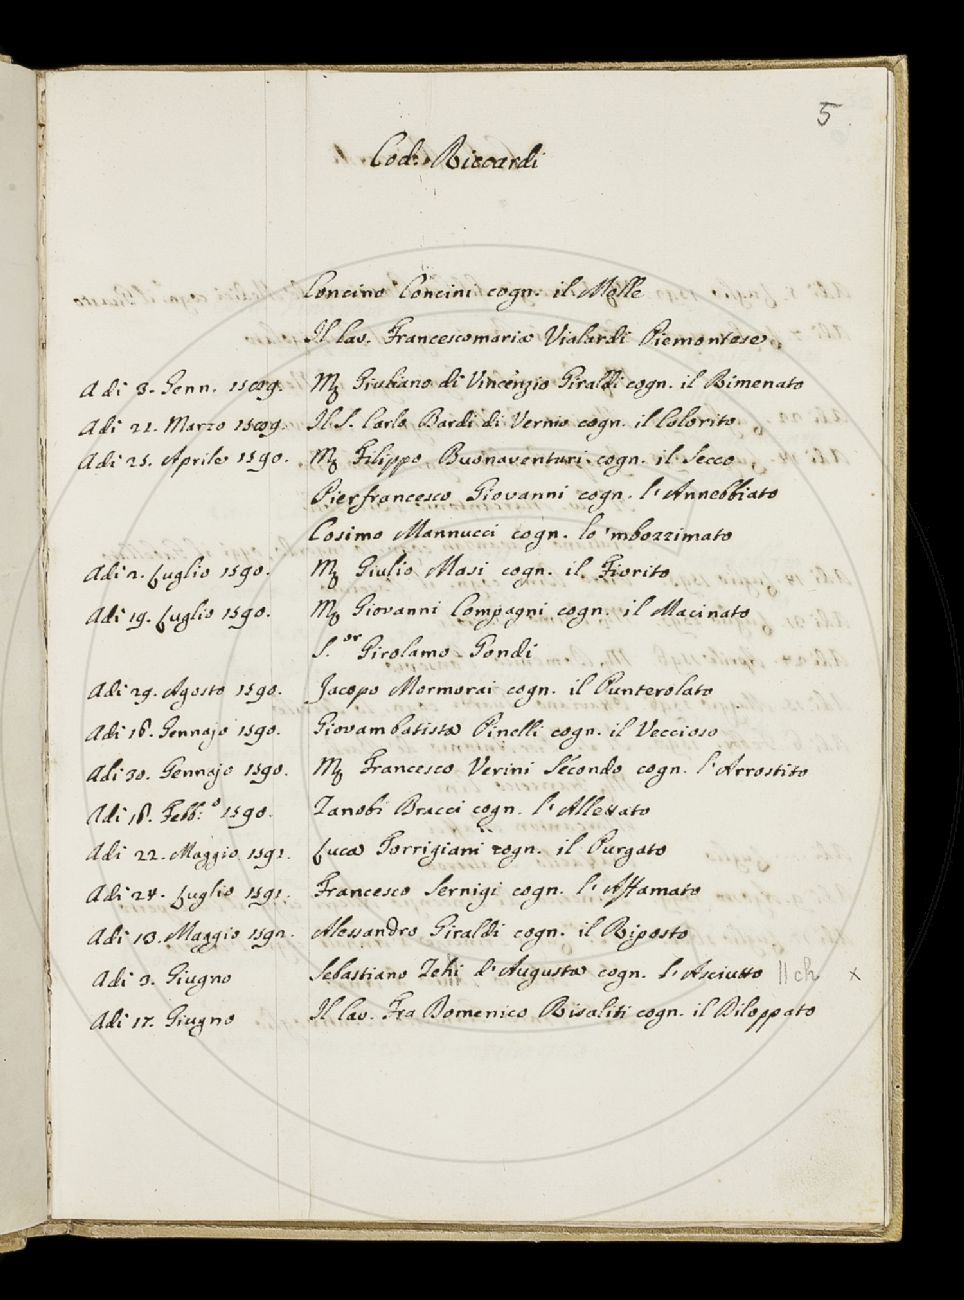 5
Cod. Riccardi
Concino Concini cogn. il Molle
Il Cav. Francescomaria Vialardi Piemontese
Adi 3. Genn. 1589. Mʳ Giuliano di Vincenzio Giraldi cogn. il Rimenato
Adi 21. Marzo 1589. Il S. Carlo Bardi di Vernio cogn. il Colorito
Adi 25. Aprile 1590. Mʳ Filippo Buonaventuri cogn. il Secco
Pierfrancesco Giovanni cogn. l'Annebbiato
Cosimo Mannucci cogn. lo 'mbozzimato
Adi 2. Luglio 1590. Mʳ Giulio Mosi cogn. il Fiorito
Adi 19. Luglio 1590. Mʳ Giovanni Compagni cogn. il Macinato
S.ᵒʳ Girolamo Gondi
Adi 29. Agosto 1590. Jacopo Mormorai cogn. il Punterolato
Adi 18. Gennajo 1590. Giovambatista Pinelli cogn. il Veccioso
Adi 30. Gennajo 1590. Mʳ Francesco Verini Secondo cogn. l'Arrostito
Adi 18. Febb.º 1590. Zanobi Bracci cogn. l'Allessato
Adi 22. Maggio 1591. Luca Torrigiani cogn. il Purgato
Adi 24. Luglio 1591. Francesco Sernigi cogn. l'Affamato
Adi 13. Maggio 1592. Alessandro Giraldi cogn. il Riposto
Adi 3. Giugno Sebastiano Zehi d'Augusta cogn. l'Asciutto || ch x
Adi 17. Giugno Il Cav. Fra Domenico Risaliti cogn. il Riloppato